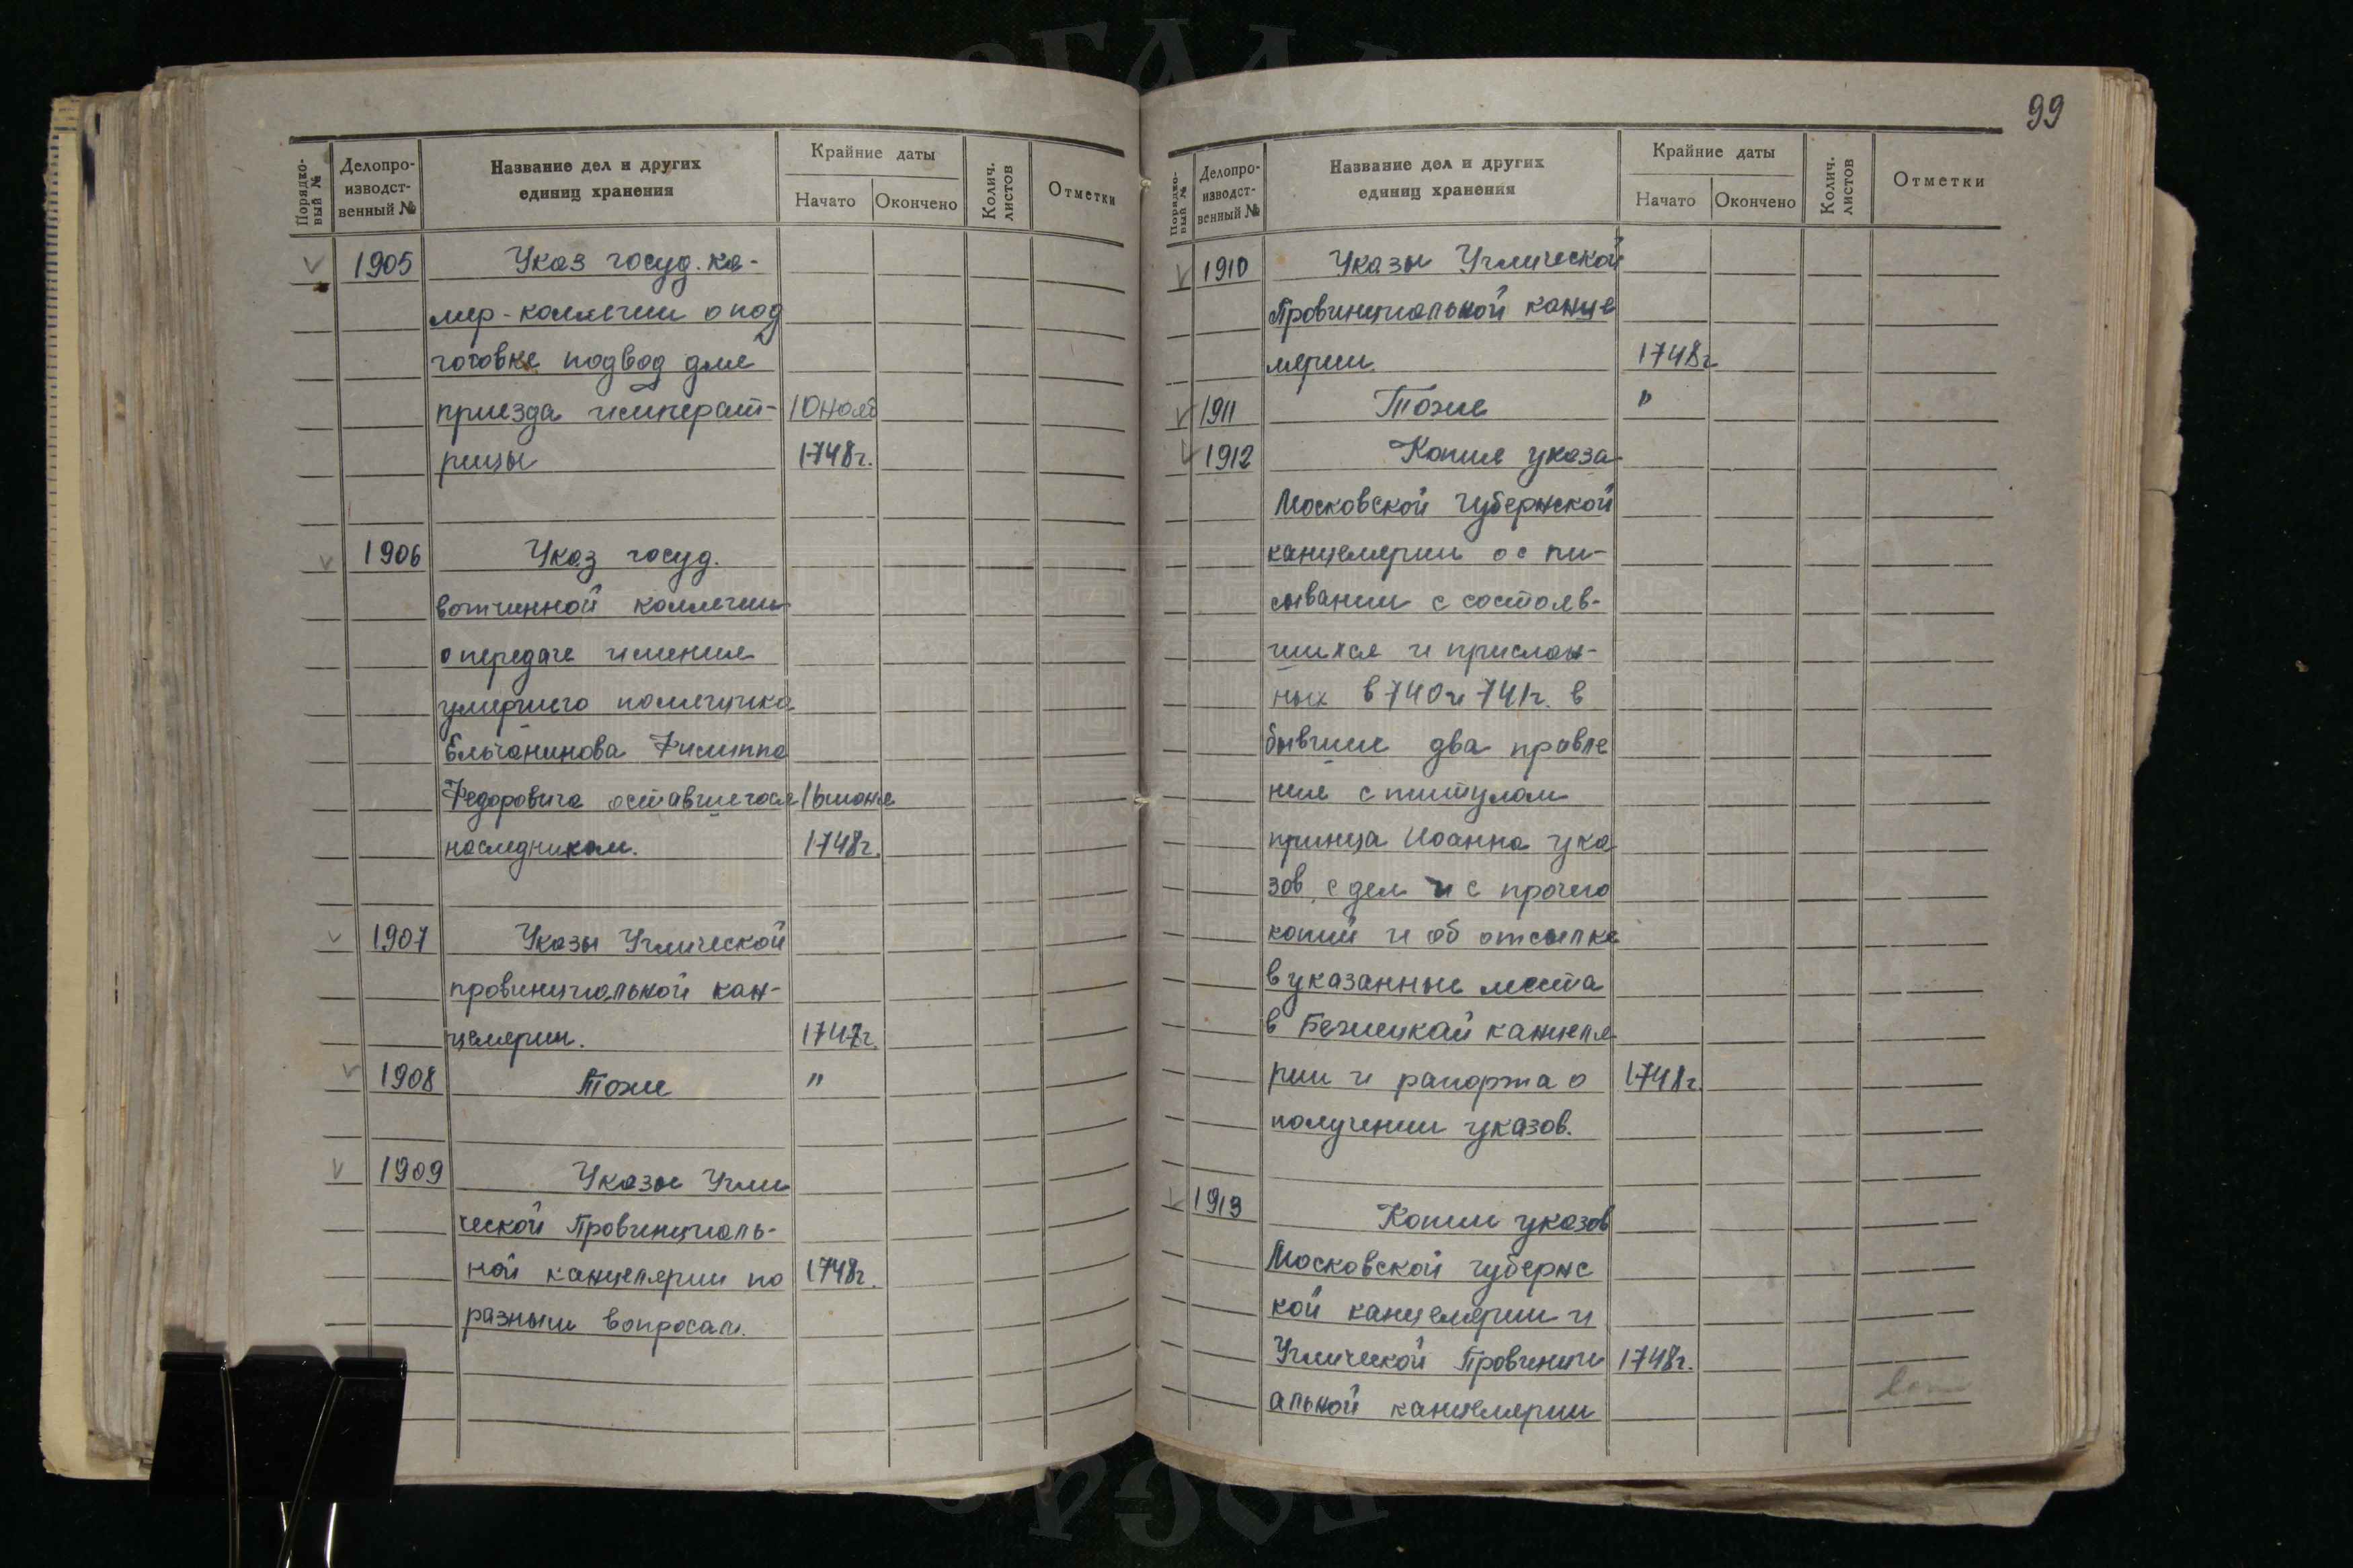 99
Порядко-
вый №
Делопро-
изводст-
венный №
Название дел и других
единиц хранения
Крайние даты
Начато
Окончено
Колич.
листов
Отметки
1905 Указ госуд. ка-
мер-коллегии о под
готовке подвод для
приезда императ- 10 нояб
рицы 1748г.
1906 Указ госуд.
вотчинной коллегии
о передаче имения
умершего помещика
Ельчанинова Филиппа
Федоровича оставшегося 16 июня
наследникам. 1748г.
1907 Указы Угличской
провинциальной кан-
целярии. 1747г.
1908 Тоже "
1909 Указы Угли
ческой Провинциаль-
ной канцелярии по 1748г.
разным вопросам.
Порядко-
вый №
Делопро-
изводст-
венный №
Название дел и других
единиц хранения
Крайние даты
Начато
Окончено
Колич.
листов
Отметки
1910 Указы Угличской
Провинциальной канце
лярии. 1748г
1911 Тоже "
1912 Копия указа
Московской Губернской
канцелярии о с пи-
сывании с состояв-
шихся и прислан-
ных в 740 и 741г. в
бывшие два правле
ние с титулом
принца Иоанна ука
зов, с дел и с прочего
копий и об отсылке
в указанные места
в Бежецкой канцеля
рии и рапорта о 1748г.
получении указов.
1913 Копии указов
Московской губернс
кой канцелярии и
Угличской Провинци 1748г.
альной канцелярии